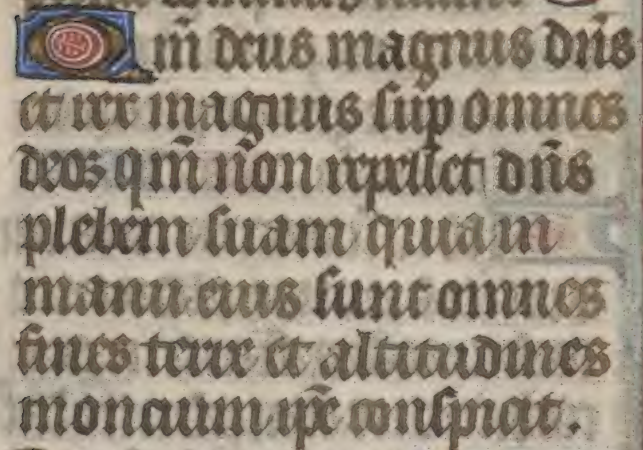 Qm̄ deus magnus dn̄s
et rex magnus sup omnes
deos qm̄ non repellet dn̄s
plebem suam quia in
manu eius sunt omnes
fines terre et altitudines
moncium ip̄e conspicit.